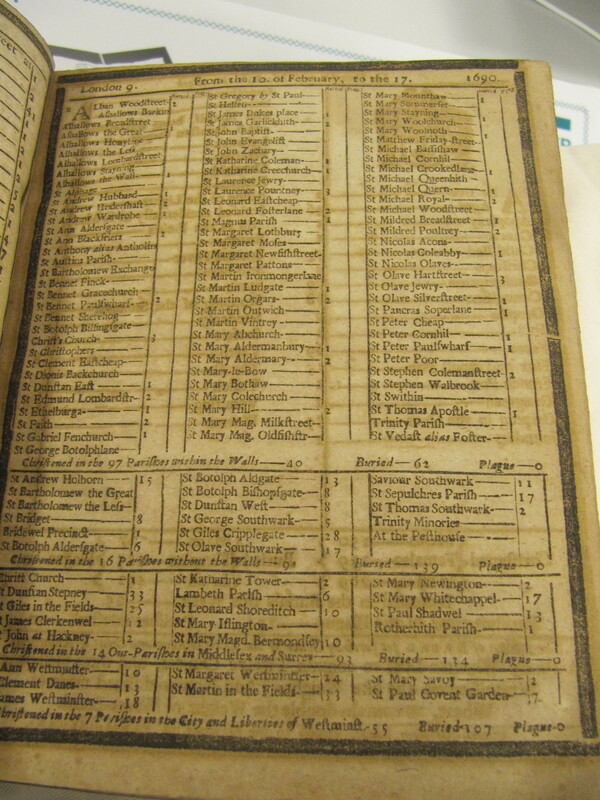 London 9. From the 10. of February, to the 17. 1690.
Alban Woodstreet- 2
Alhallows Barkin
Alhallows Breadstreet
Alhallows the Great 1
Alhallows Honylane
Alhallows the Less
Alhallows Lombardstreet
Alhallows Stayning
Alhallows the Wall
St Alphage
St Andrew Hubbard 1
St Andrew Undershaft 2
St Andrew Wardrobe 1
St Ann Aldersgate
St Ann Blackfriers 2
St Anthony alias Antholin
St Austins Parish
St Bartholomew Exchange
St Bennet Finck
St Bennet Gracechurch
St Bennet Paulswharf 2
St Bennet Sherehog
St Botolph Billingsgate
Christ's Church 3
St Christophers
St Clement Eastcheap
St Dionis Backchurch
St Dunstan East 1
St Edmund Lombardstr- 2
St Ethelburga 1
St Faith 2
St Gabriel Fenchurch 1
St George Botolphlane
St Gregory by St Paul
St Hellen
St James Dukes place 1
St James Garlickhith 2
St John Baptist
St John Evangelist
St John Zachary
St Katharine Coleman 1
St Katharine Creechurch 1
St Laurence Jewry
St Laurence Pountney 3
St Leonard Eastcheap
St Leonard Fosterlane 2
St Magnus Parish 1
St Margaret Lothbury
St Margaret Moses
St Margaret Newfishstreet
St Margaret Pattons
St Martin Ironmongerlane
St Martin Ludgate 1
St Martin Orgars 2
St Martin Outwich
St Martin Vintrey
St Mary Abchurch
St Mary Aldermanbury 1
St Mary Aldermary 2
St Mary-le-Bow
St Mary Bothaw
St Mary Colechurch
St Mary Hill 2
St Mary Mag. Milkstreet
St Mary Mag. Oldfishstr
St Mary Mounthaw
St Mary Summerset
St Mary Stayning
St Mary Woolchurch
St Mary Woolnoth
St Matthew Friday-street
St Michael Bassishaw
St Michael Cornhil
St Michael Crookedlane
St Michael Queenhith
St Michael Quern 1
St Michael Royal 2
St Michael Woodstreet
St Mildred Breadstreet 1
St Mildred Poultrey 2
St Nicolas Acons
St Nicolas Coleabby 1
St Nicolas Olaves
St Olave Hartstreet 3
St Olave Jewry
St Olave Silverstreet
St Pancras Soperlane 1
St Peter Cheap
St Peter Cornhil 1
St Peter Paulswharf 1
St Peter Poor
St Stephen Colemanstreet 2
St Stephen Walbrook
St Swithin
St Thomas Apostle 1
Trinity Parish
St Vedast alias Foster
Christened in the 97 Parishes within the Walls 40 Buried 62 Plague 0
St Andrew Holborn 15
St Bartholomew the Great
St Bartholomew the Less
St Bridget 8
Bridewel Precinct 1
St Botolph Aldersgate 6
St Botolph Aldgate 13
St Botolph Bishopsgate 8
St Dunstan West 8
St George Southwark 5
St Giles Cripplegate 28
St Olave Southwark 17
Saviour Southwark 11
St Sepulchres Parish 17
St Thomas Southwark 2
Trinity Minories
At the Pesthouse
Christened in the 16 Parishes without the Walls Buried 139 Plague 0
Christ Church 1
St Dunstan Stepney 33
St Giles in the Fields 25
St James Clerkenwel 12
St John at Hackney 2
St Katharine Tower 2
Lambeth Parish 6
St Leonard Shoreditch 10
St Mary Islington
St Mary Magd. Bermondsey 10
St Mary Newington 2
St Mary Whitechappel 17
St Paul Shadwel 13
Rotherhith Parish 1
Christened in the 14 Out-Parishes in Middlesex and Surrey 93 Buried 134 Plague 0
Ann Westminster 10
Clement Danes 13
James Westminster 18
St Margaret Westminster 24
St Martin in the Fields 33
St Mary Savoy 2
St Paul Covent Garden 7
Christened in the 7 Parishes in the City and Liberties of Westminst. 55 Buried 107 Plague 0